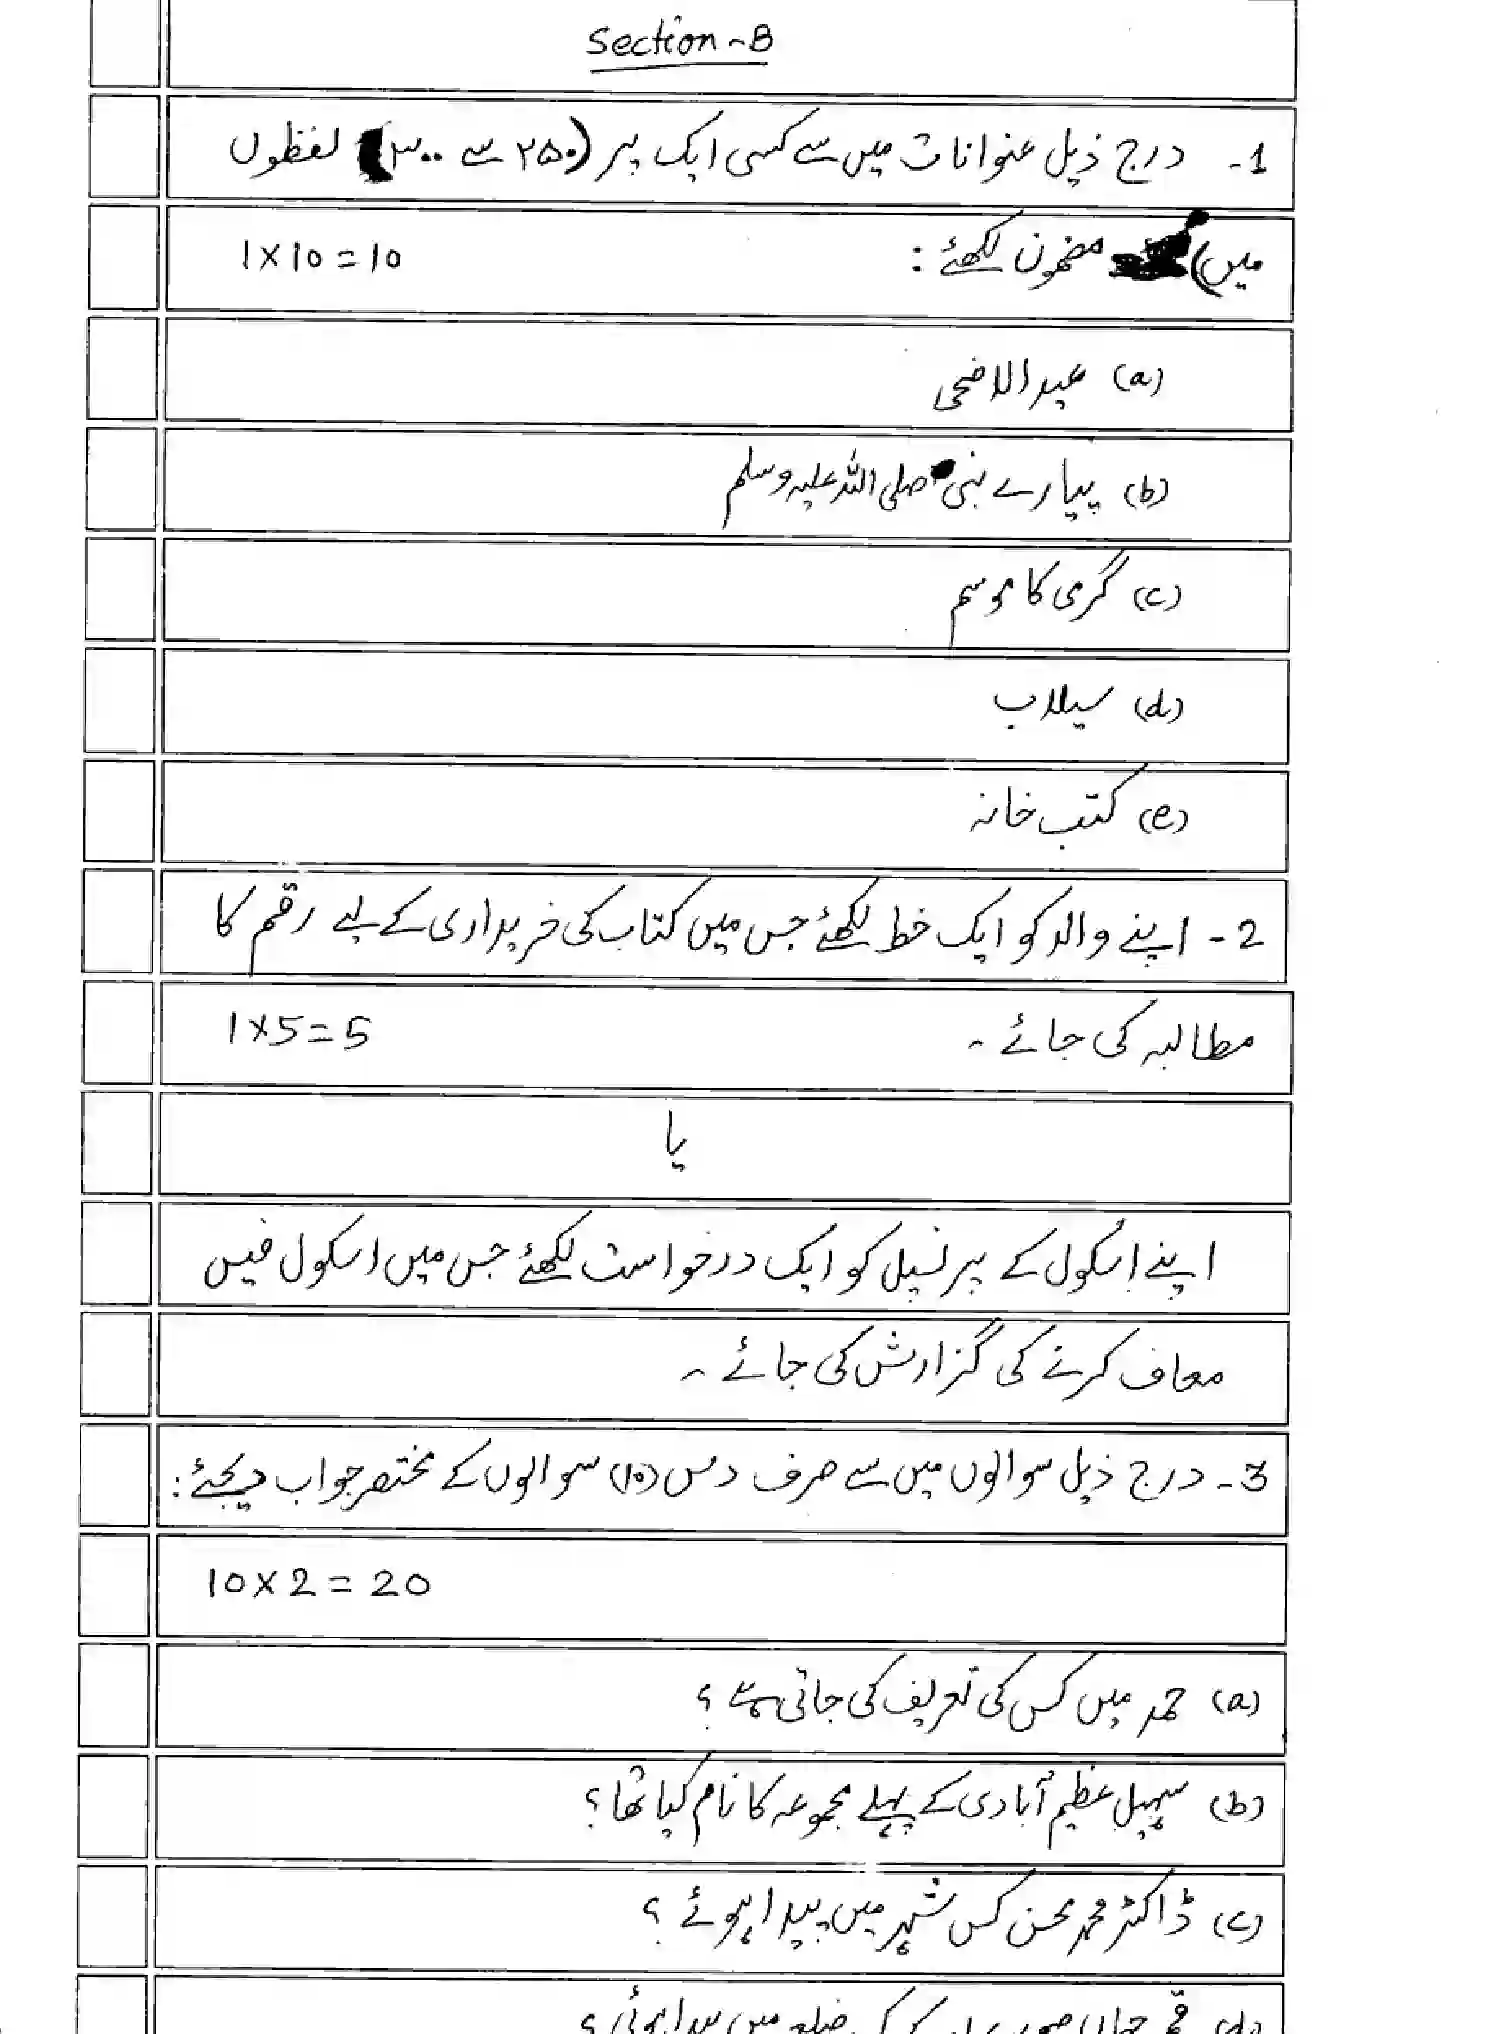 Section-B
1- درج ذیل عنوانات میں سے کسی ایک پر (۲۵۰ سے ۳۰۰ لفظوں
میں) مضمون لکھئے :
1×10=10
(a) عیدالاضحی
(b) پیارے نبی صلی اللہ علیہ وسلم
(c) گرمی کا موسم
(d) سیلاب
(e) کتب خانہ
2- اپنے والد کو ایک خط لکھئے جس میں کتاب کی خریداری کے لیے رقم کا
مطالبہ کی جائے ۔
1×5=5
یا
اپنے اسکول کے پرنسپل کو ایک درخواست لکھئے جس میں اسکول فیس
معاف کرنے کی گزارش کی جائے ۔
3- درج ذیل سوالوں میں سے صرف دس (۱۰) سوالوں کے مختصر جواب دیجئے :
10×2=20
(a) حمد میں کس کی تعریف کی جاتی ہے ؟
(b) سہیل عظیم آبادی کے پہلے مجموعہ کا نام کیا تھا ؟
(c) ڈاکٹر محمد محسن کس شہر میں پیدا ہوئے ؟
(d) قمر جہاں صوبہ بہار کے کس ضلع میں پیدا ہوئی ؟